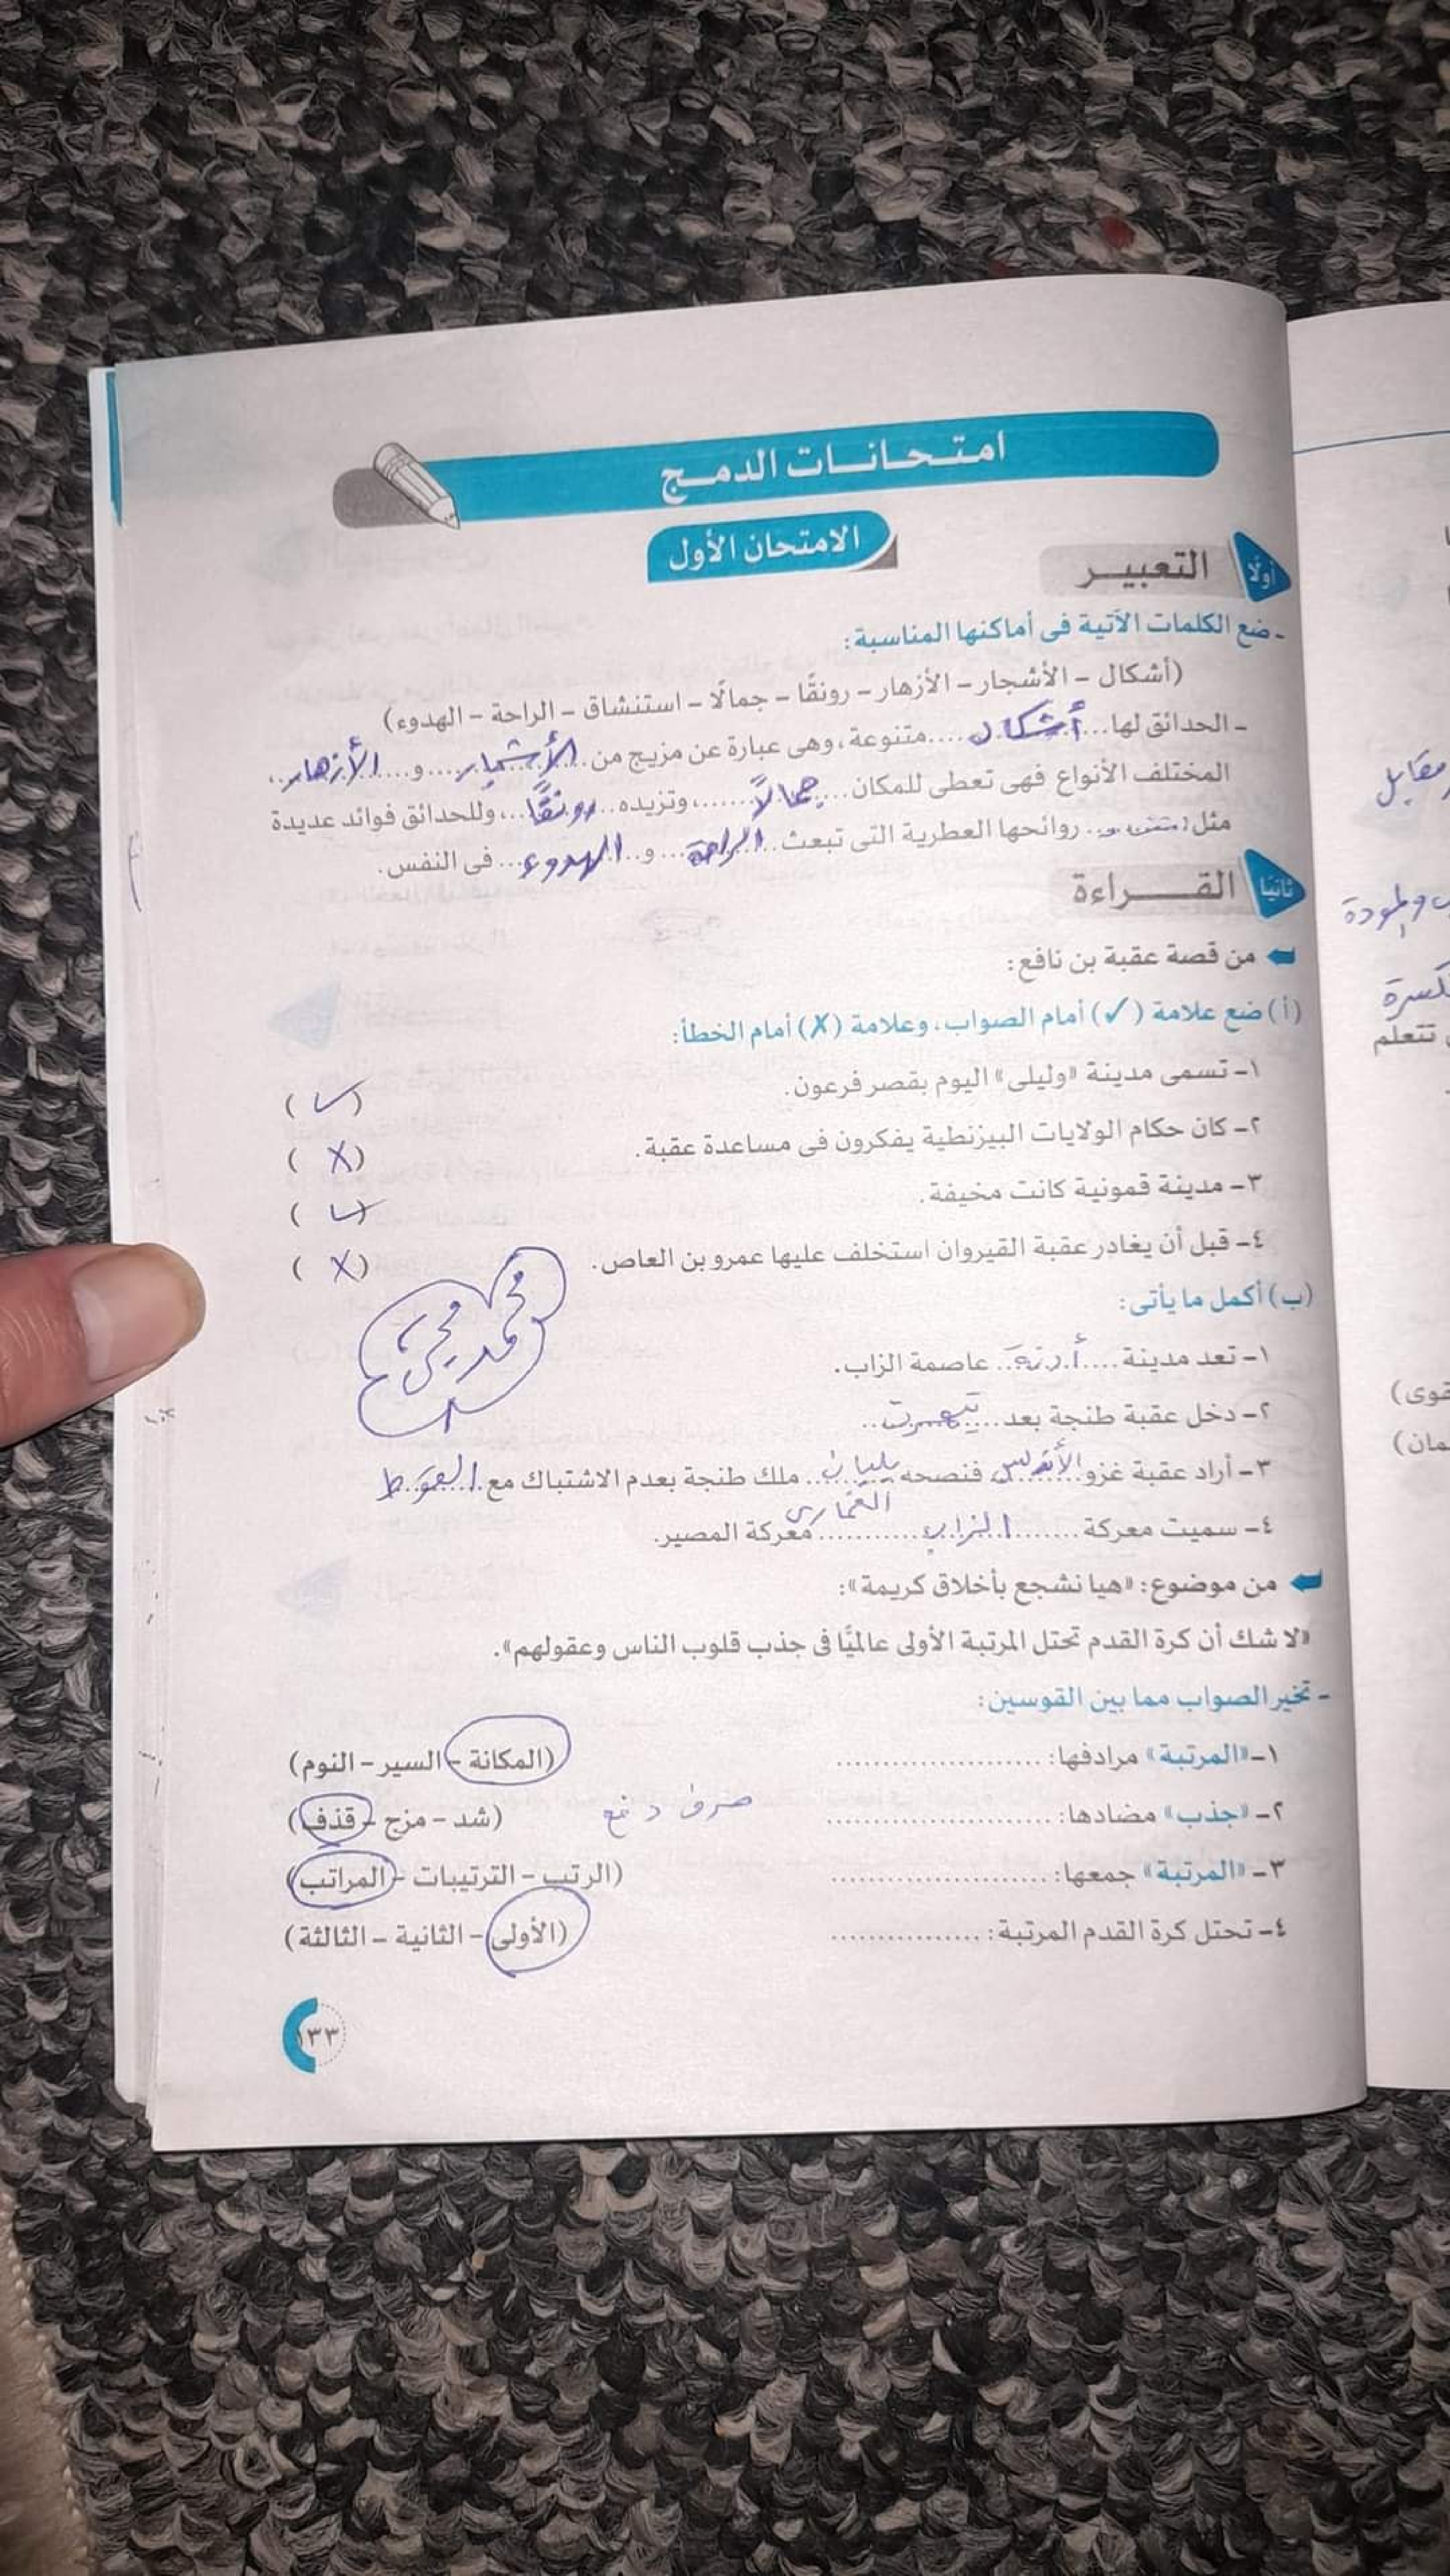 امتحانات الدمج
الامتحان الأول
أولاً التعبير
- ضع الكلمات الآتية فى أماكنها المناسبة:
(أشكال - الأشجار - الأزهار - رونقًا - جمالًا - استنشاق - الراحة - الهدوء)
- الحدائق لها...أشكال....متنوعة، وهى عبارة عن مزيج من..الأشجار....و...الأزهار..،
المختلف الأنواع فهى تعطى للمكان....جمالاً......، وتزيده..رونقًا..، وللحدائق فوائد عديدة
مثل:.... روائحها العطرية التى تبعث..الراحة...و..الهدوء...فى النفس.
ثانيًا القــراءة
من قصة عقبة بن نافع:
(أ) ضع علامة (✓) أمام الصواب، وعلامة (✗) أمام الخطأ:
١- تسمى مدينة «وليلى» اليوم بقصر فرعون. (✓)
٢- كان حكام الولايات البيزنطية يفكرون فى مساعدة عقبة. (✗)
٣- مدينة قمونية كانت مخيفة. (✓)
٤- قبل أن يغادر عقبة القيروان استخلف عليها عمرو بن العاص. (✗)
(ب) أكمل ما يأتى:
محمد
١- تعد مدينة....أدنة..عاصمة الزاب.
٢- دخل عقبة طنجة بعد....تيهرت..
٣- أراد عقبة غزو..الأندلس..فنصحه يليان..ملك طنجة بعدم الاشتباك مع..القوط
الغمارى
٤- سميت معركة.......الزاب...........معركة المصير.
من موضوع: «هيا نشجع بأخلاق كريمة»:
«لا شك أن كرة القدم تحتل المرتبة الأولى عالميًّا فى جذب قلوب الناس وعقولهم».
- تخير الصواب مما بين القوسين:
١- «المرتبة» مرادفها: .................... (المكانة - السير - النوم)
٢- «جذب» مضادها: ...................... صرف دفع (شد - مزج - قذف)
٣- «المرتبة» جمعها: ..................... (الرتب - الترتيبات - المراتب)
٤- تحتل كرة القدم المرتبة: ............... (الأولى - الثانية - الثالثة)
١٣٣
مقابل
والمودة
تتعلم